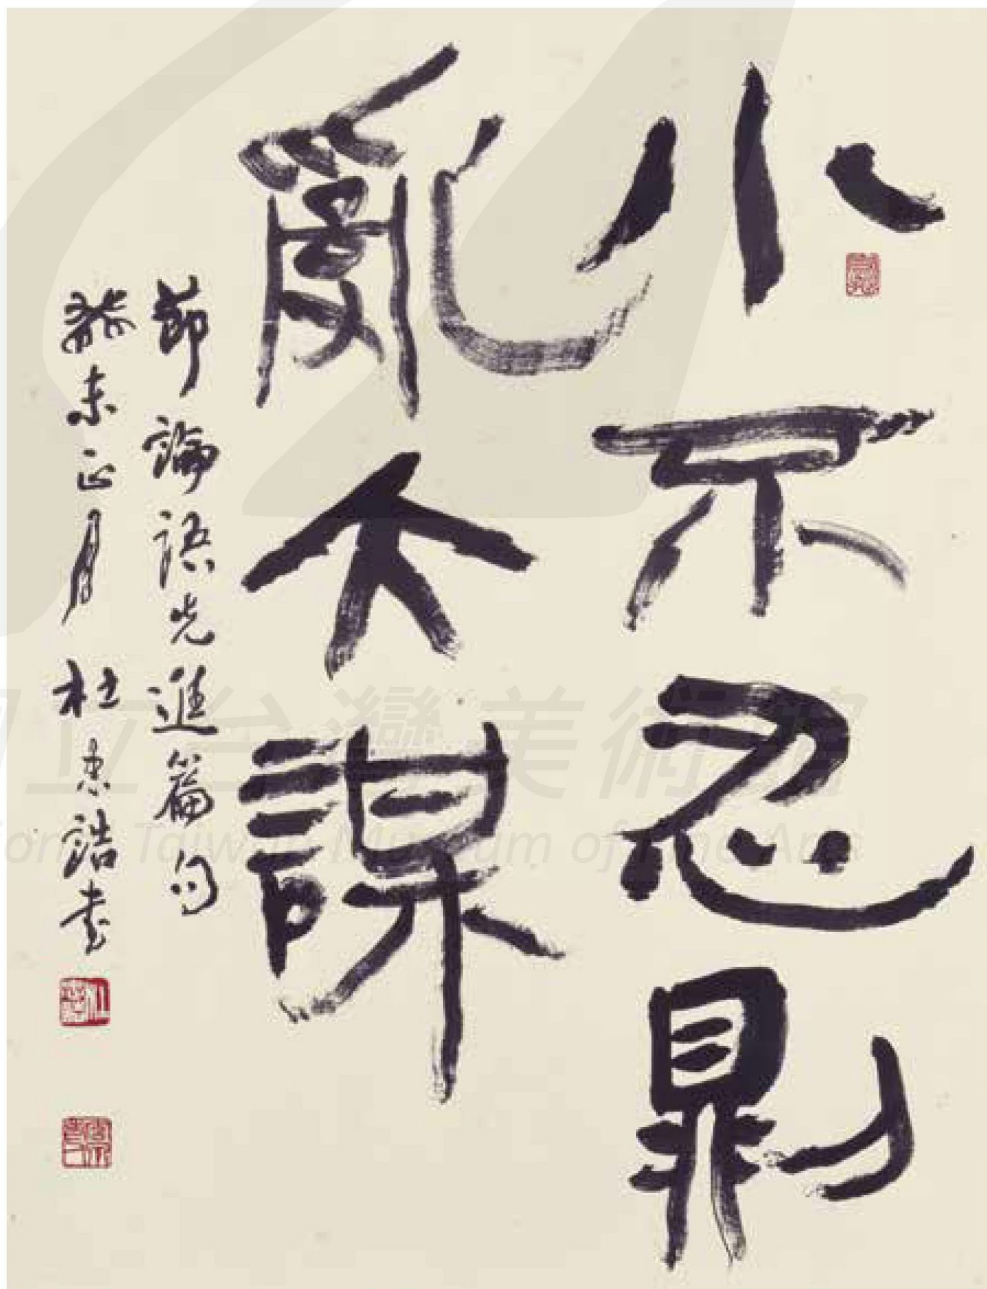 小不忍則
亂大謀
節論語先進篇句
癸未正月杜忠誥書
國立台灣美術館
National Taiwan Museum of Fine Arts